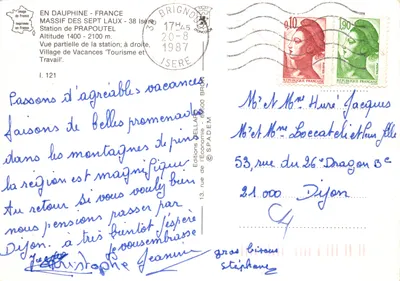 EN DAUPHINE - FRANCE
MASSIF DES SEPT LAUX - 38 Isère
Station de PRAPOUTEL
Altitude 1400 - 2100 m.
Vue partielle de la station; à droite,
Village de Vacances 'Tourisme et
Travail'.
I. 121
38 BRIGNOUD
17H
20-8
1987
ISERE
0,10
1,90
Passons d'agréables vacances
faisons de belles promenades
dans les montagnes de pins
la région est magnifique
Au retour si vous voulez bien
nous pensions passer par
Dijon. a très bientôt j'espère
Je vous embrasse
Christophe Jeannine
Mr et Mme Huré Jacques
Mr et Mme Loccatelli et un fille
53, rue du 26e Dragon Bc
21 000 Dijon
gros bisous
Stéphane
Editions BELL
13, rue de l'E
© S.P.A.D.E.M.